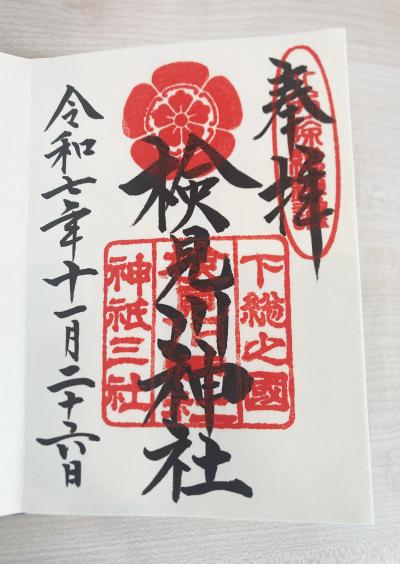 奉拝
下總之國
検見川神社
神祇三社
令和七年十一月二十六日